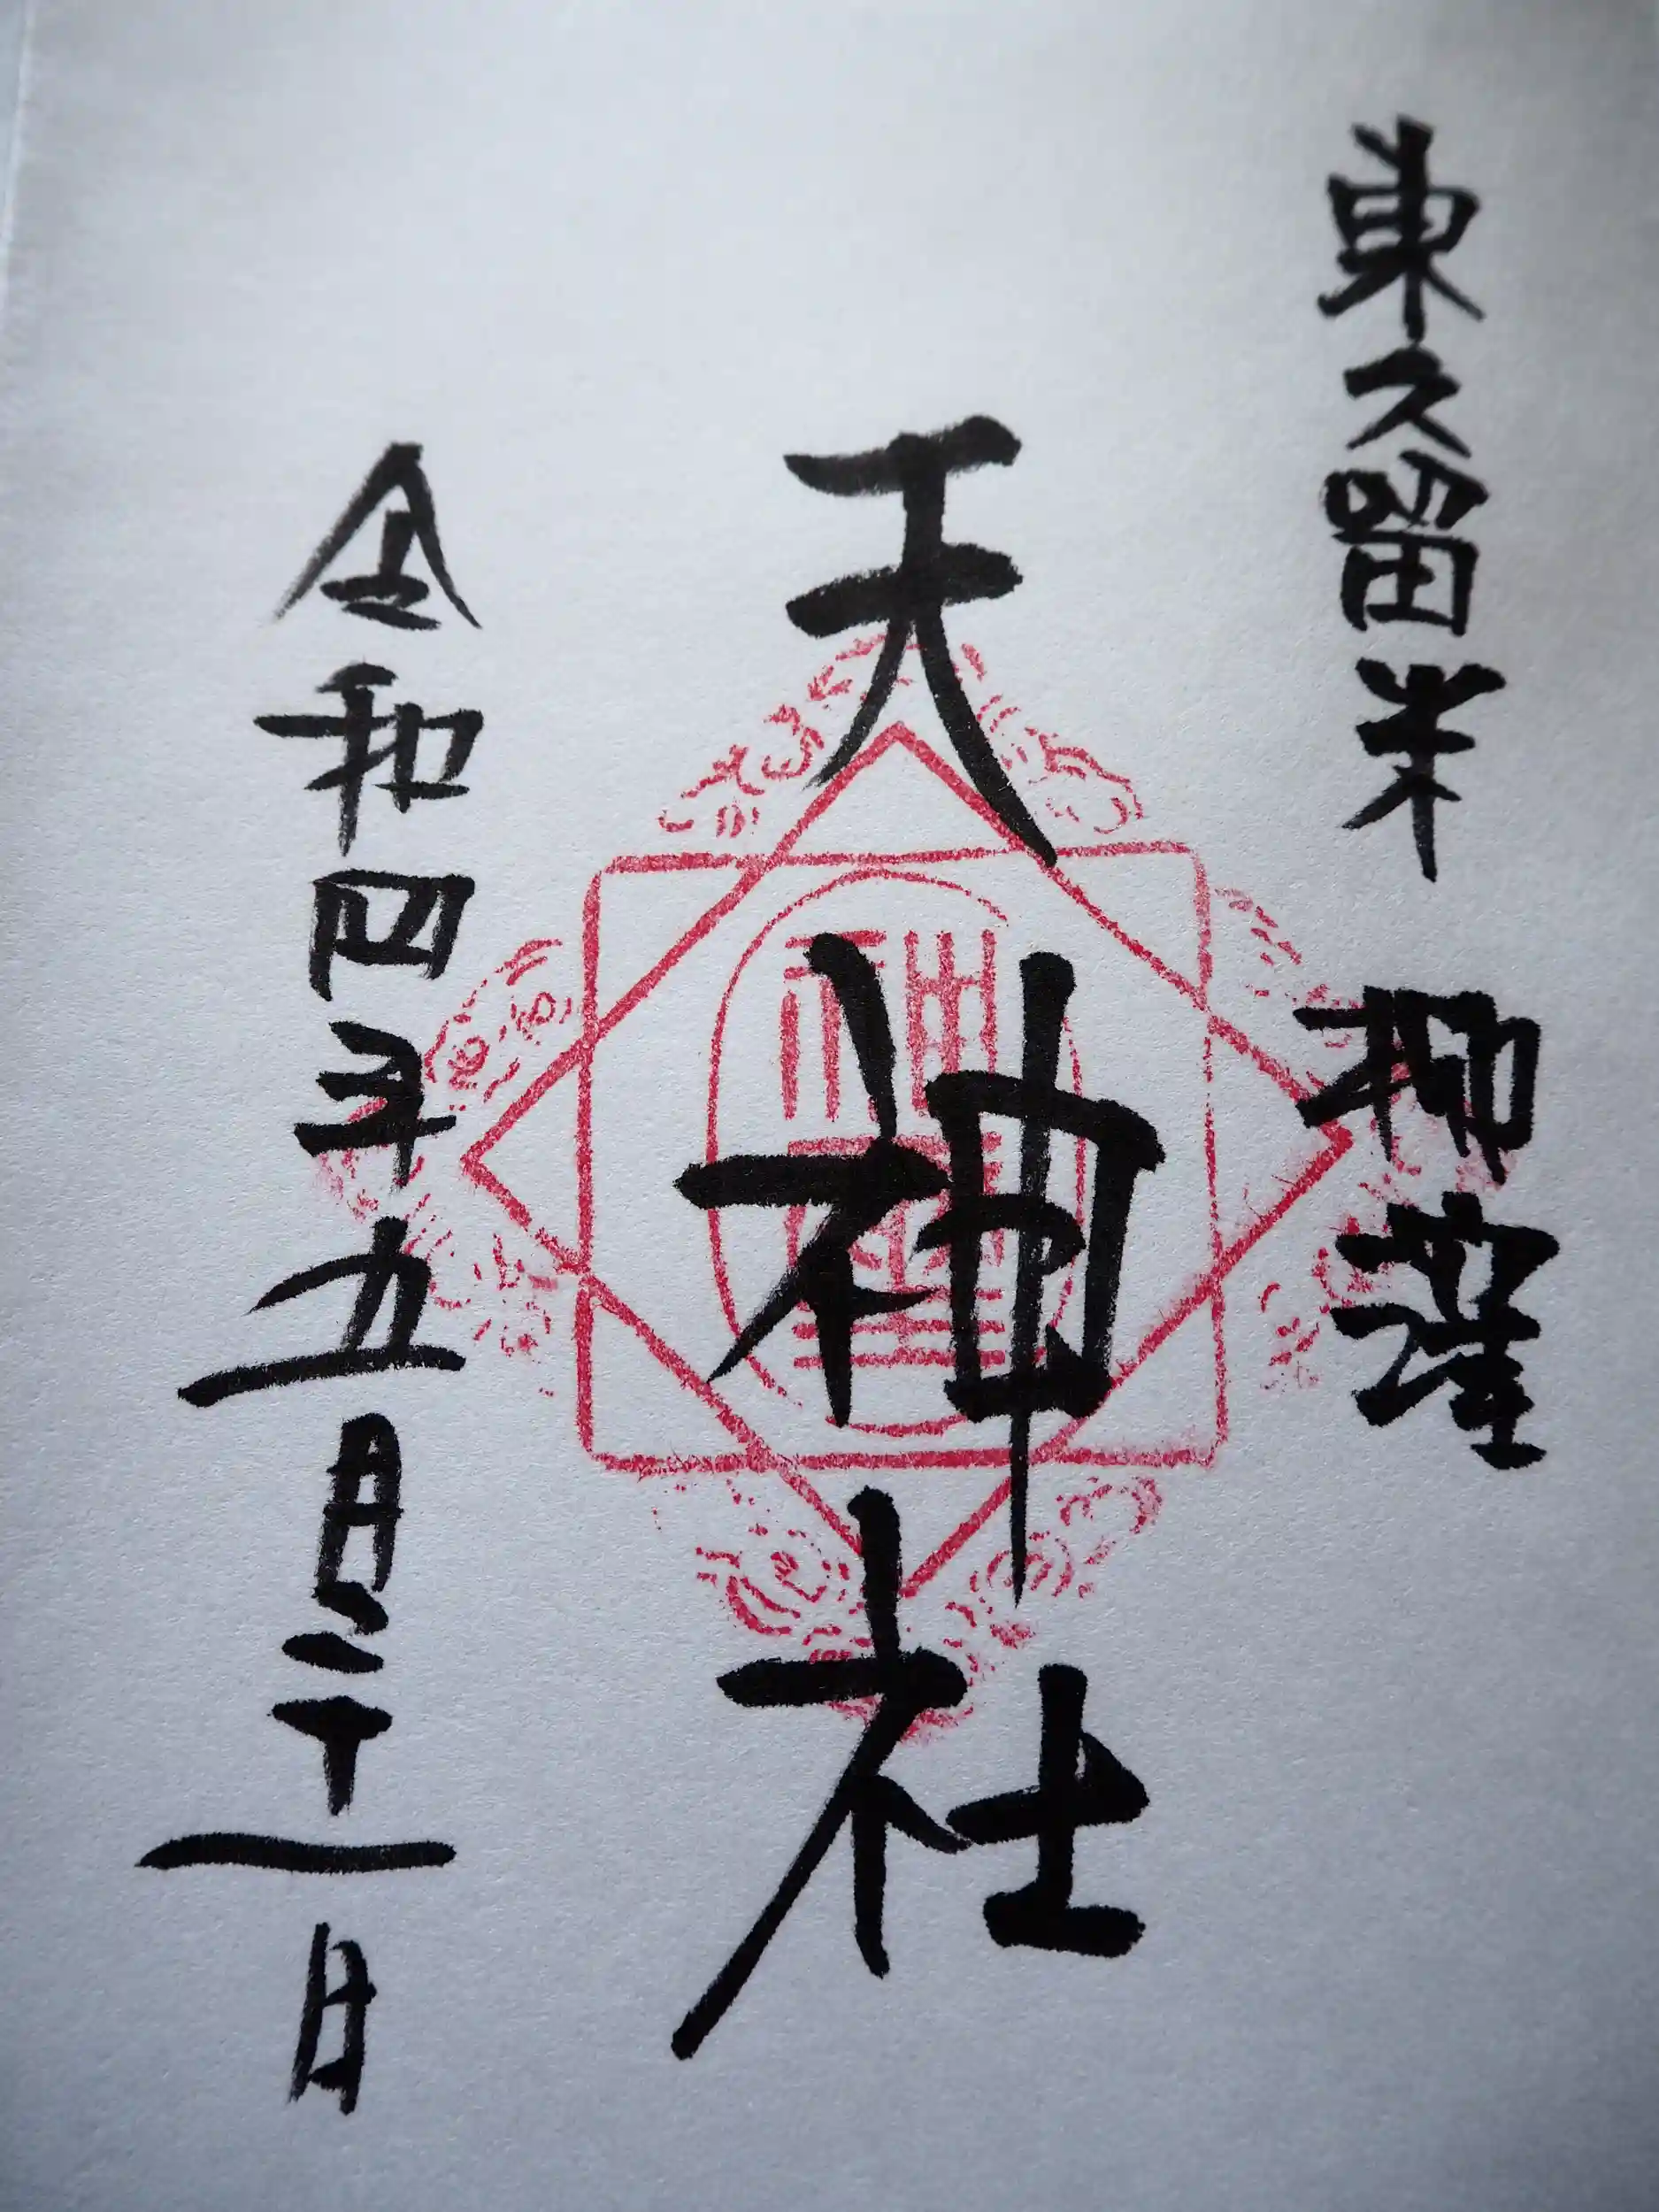 東久留米 柳窪
天神社
令和四年五月二十一日